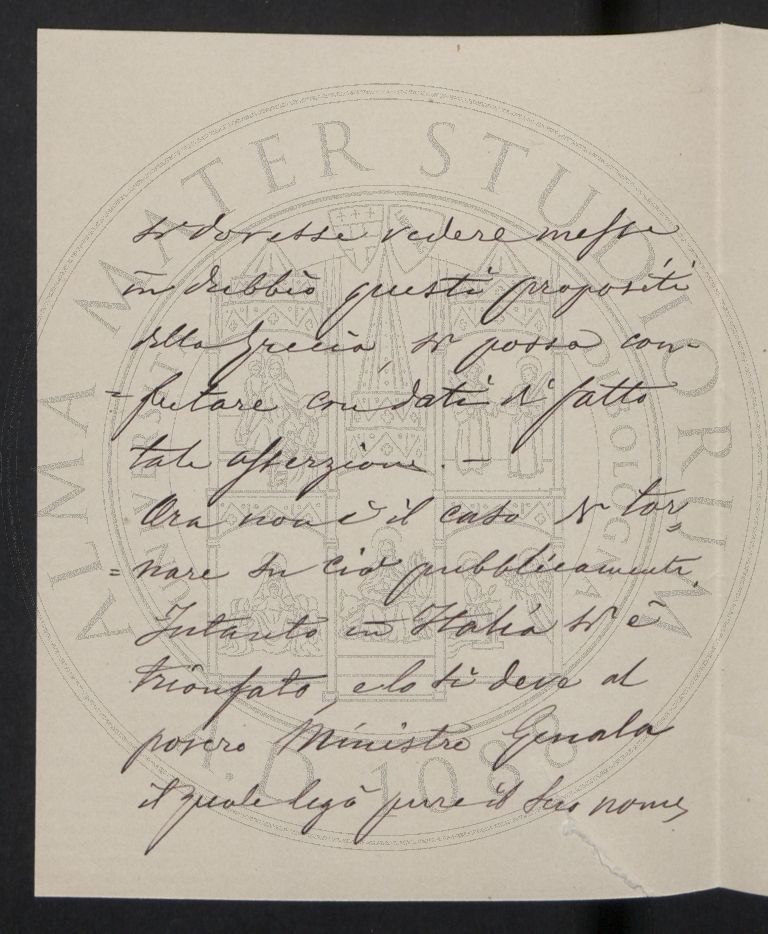 ALMA MATER STUDIORUM
UNIVERSITÀ DI BOLOGNA
A.D. 1088
si dovesse vedere messe
in dubbio questi propositi
della Grecia, si possa con-
=futare con dati di fatto
tale asserzione. –
Ora non è il caso di tor=
=nare su ciò pubblicamente.
Intanto in Italia si è
trionfato, e lo si deve al
povero Ministro Genala
il quale legò pure il suo nome